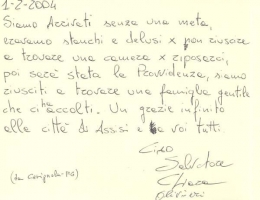 1-2-2004
Siamo Arrivati senza una meta,
eravamo stanchi e delusi x non riuscire
a trovare una camera x riposarci,
poi sarà stata la Provvidenza, siamo
riusciti a trovare una famiglia gentile
che ci ha accolti. Un grazie infinito
alla città di Assisi e a voi tutti.
Ciao
Salvatore
Chiara
(da Cerignola-FG)